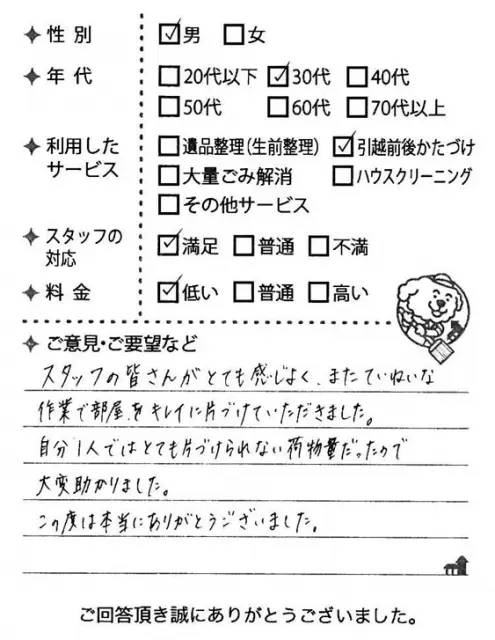 ✦ 性別 ☑男 □女
✦ 年代 □20代以下 ☑30代 □40代
□50代 □60代 □70代以上
✦ 利用したサービス □遺品整理(生前整理) ☑引越前後かたづけ
□大量ごみ解消 □ハウスクリーニング
□その他サービス
✦ スタッフの対応 ☑満足 □普通 □不満
✦ 料金 ☑低い □普通 □高い
✦ ご意見・ご要望など
スタッフの皆さんがとても感じよく、またていねいな
作業で部屋をキレイに片づけていただきました。
自分1人ではとても片づけられない荷物量だったので
大変助かりました。
この度は本当にありがとうございました。
ご回答頂き誠にありがとうございました。